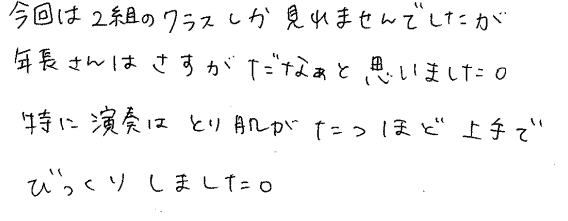 今回は2組のクラスしか見れませんでしたが
年長さんはさすがだなぁと思いました。
特に演奏はとり肌がたつほど上手で
びっくりしました。